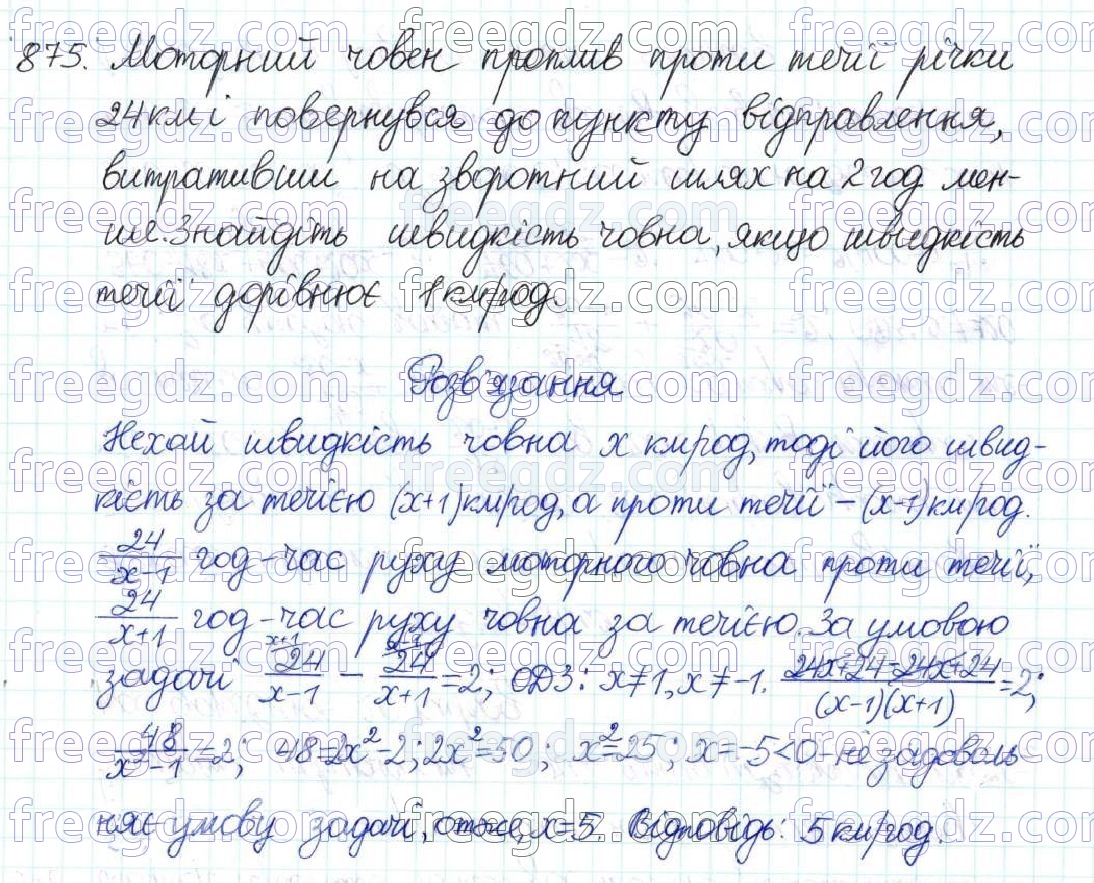 875. Моторний човен проплив проти течії річки
24 км і повернувся до пункту відправлення,
витративши на зворотний шлях на 2 год мен-
ше. Знайдіть швидкість човна, якщо швидкість
течії дорівнює 1 км/год.
Розв'язання
Нехай швидкість човна x км/год, тоді його швид-
кість за течією (x+1) км/год, а проти течії – (x-1) км/год.
24/(x-1) год - час руху моторного човна проти течії,
24/(x+1) год - час руху човна за течією. За умовою
задачі 24/(x-1) - 24/(x+1) = 2; ОДЗ: x≠1, x≠-1. (24x+24-24x+24)/((x-1)(x+1)) = 2;
48/(x²-1) = 2; 48=2x²-2; 2x²=50; x²=25; x=-5<0 - не задоволь-
няє умову задачі, отже, x=5. Відповідь: 5 км/год.
freegdz.com